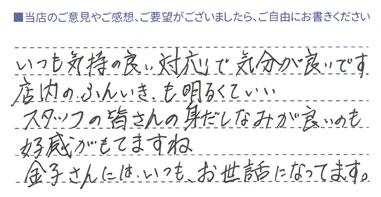 ■当店のご意見やご感想、ご要望がございましたら、ご自由にお書きください
いつも気持の良い対応で気分が良いです
店内のふんいき、も明るくていい
スタッフの皆さんの身だしなみが良いのも
好感がもてますね
金子さんには、いつも、お世話になってます。